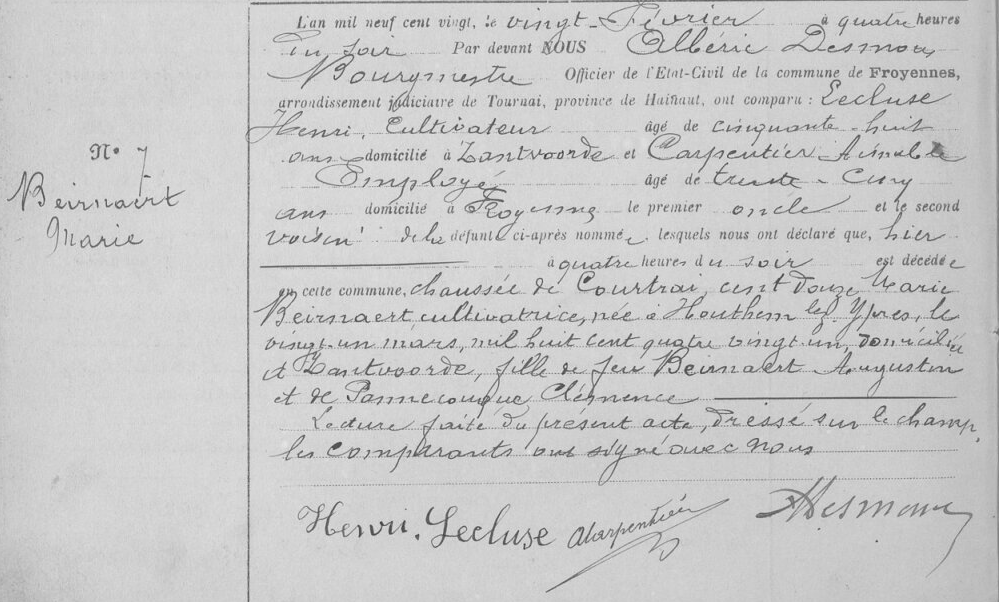 L'an mil neuf cent vingt, le vingt Février à quatre heures
du soir Par devant NOUS Albéric Desmons
Bourgmestre Officier de l'Etat-Civil de la commune de Froyennes,
arrondissement judiciaire de Tournai, province de Hainaut, ont comparu : Lecluse
Henri, Cultivateur âgé de cinquante-huit
ans domicilié à Zantvoorde et Carpentier Aimable
Employé âgé de trente-cinq
ans domicilié à Froyennes le premier oncle et le second
voisin de la défunte ci-après nommée, lesquels nous ont déclaré que, hier
à quatre heures du soir est décédée
en cette commune, chaussée de Courtrai, cent douze, Marie
Beirnaert, cultivatrice, née à Houthem lez Ypres, le
vingt-un mars, mil huit cent quatre vingt-un, domiciliée
à Zantvoorde, fille de feu Beirnaert Augustin
et de Pannecouque Clémence
Lecture faite du présent acte, dressé sur le champ,
les comparants ont signé avec nous
N° 7
Beirnaert
Marie
Henri Lecluse ACarpentier ADesmons